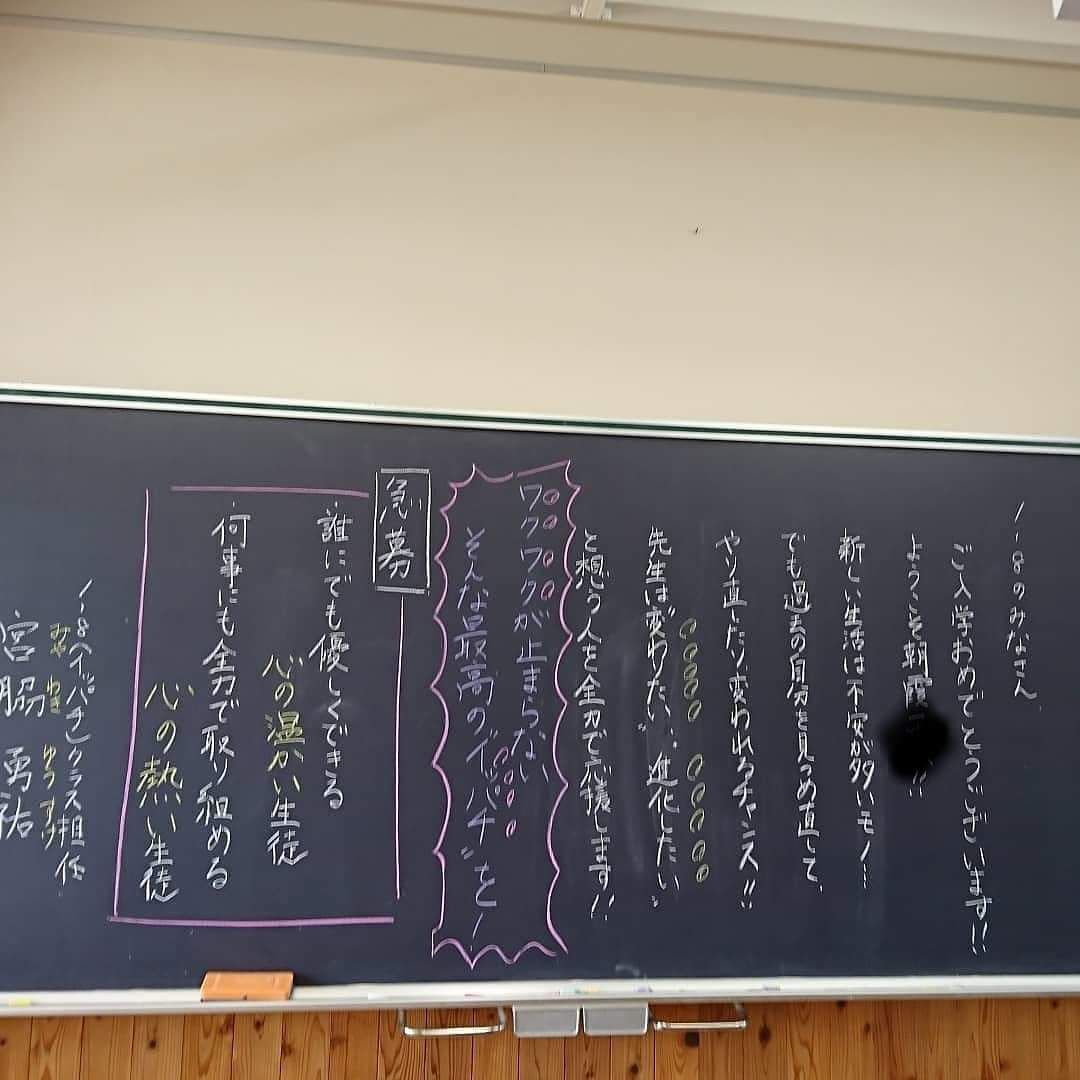 1-8のみなさん
ご入学おめでとうございます!!
ようこそ朝霞
新しい生活は不安が多いモノ…
でも過去の自分を見つめ直して、
やり直したり、変われるチャンス!!
先生は"変わりたい""進化したい"
と想う人を全力で応援します!!
ワクワクが止まらない
そんな最高の"イッパチ"を!
急募
誰にでも優しくできる
心の温かい生徒
何事にも全力で取り組める
心の熱い生徒
1-8(イッパチ)クラス担任
みや わき ゆうすけ
宮脇 勇祐